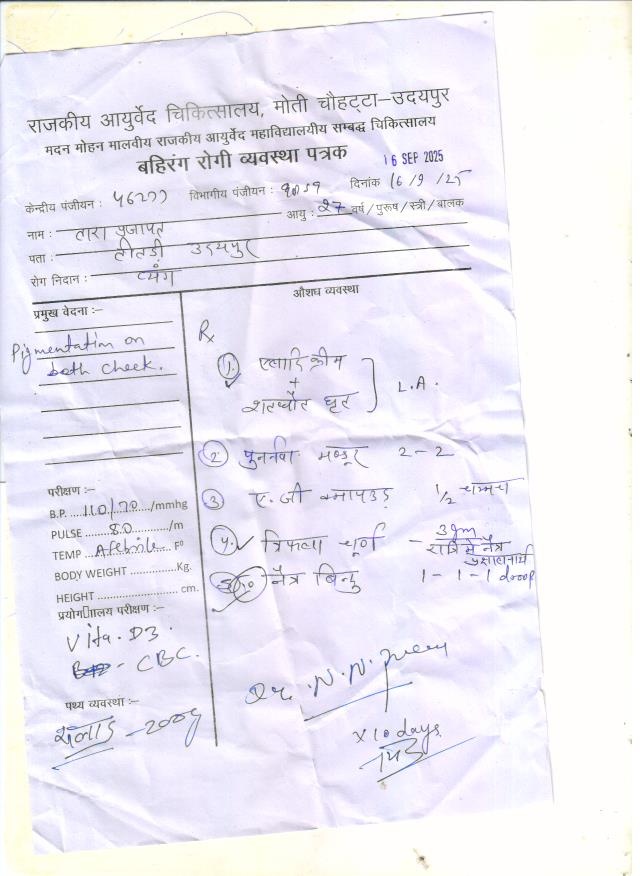 राजकीय आयुर्वेद चिकित्सालय, मोती चौहट्टा–उदयपुर
मदन मोहन मालवीय राजकीय आयुर्वेद महाविद्यालयीय सम्बद्ध चिकित्सालय
बहिरंग रोगी व्यवस्था पत्रक
16 SEP 2025
केन्द्रीय पंजीयन : विभागीय पंजीयन : दिनांक 16/9/25
आयु : 27 वर्ष/पुरूष/स्त्री/बालक
नाम : तारा प्रजापत
पता : तीतड़ी उदयपुर
रोग निदान : व्यंग
प्रमुख वेदना :-
Pigmentation on
both cheek.
परीक्षण :-
B.P. 110/70 /mmhg
PULSE 80 /m
TEMP Afebrile F⁰
BODY WEIGHT Kg.
HEIGHT cm.
प्रयोगशालाय परीक्षण :-
Vita. D3.
- CBC.
पथ्य व्यवस्था :-
सलाद - 200g
औशघ व्यवस्था
Rx
1. एलादि क्रीम
+
शतधौत घृत
L.A.
2. पुनर्नवा मण्डूर 2-2
3 ए.जी क्वाथ 1/2 चम्मच
4. त्रिफला चूर्ण - 3gm
रात्रि मे नेत्र
प्रक्षालनार्थ
5. नेत्र बिन्दु 1-1-1 droop
Dr. N.N.
x10 days